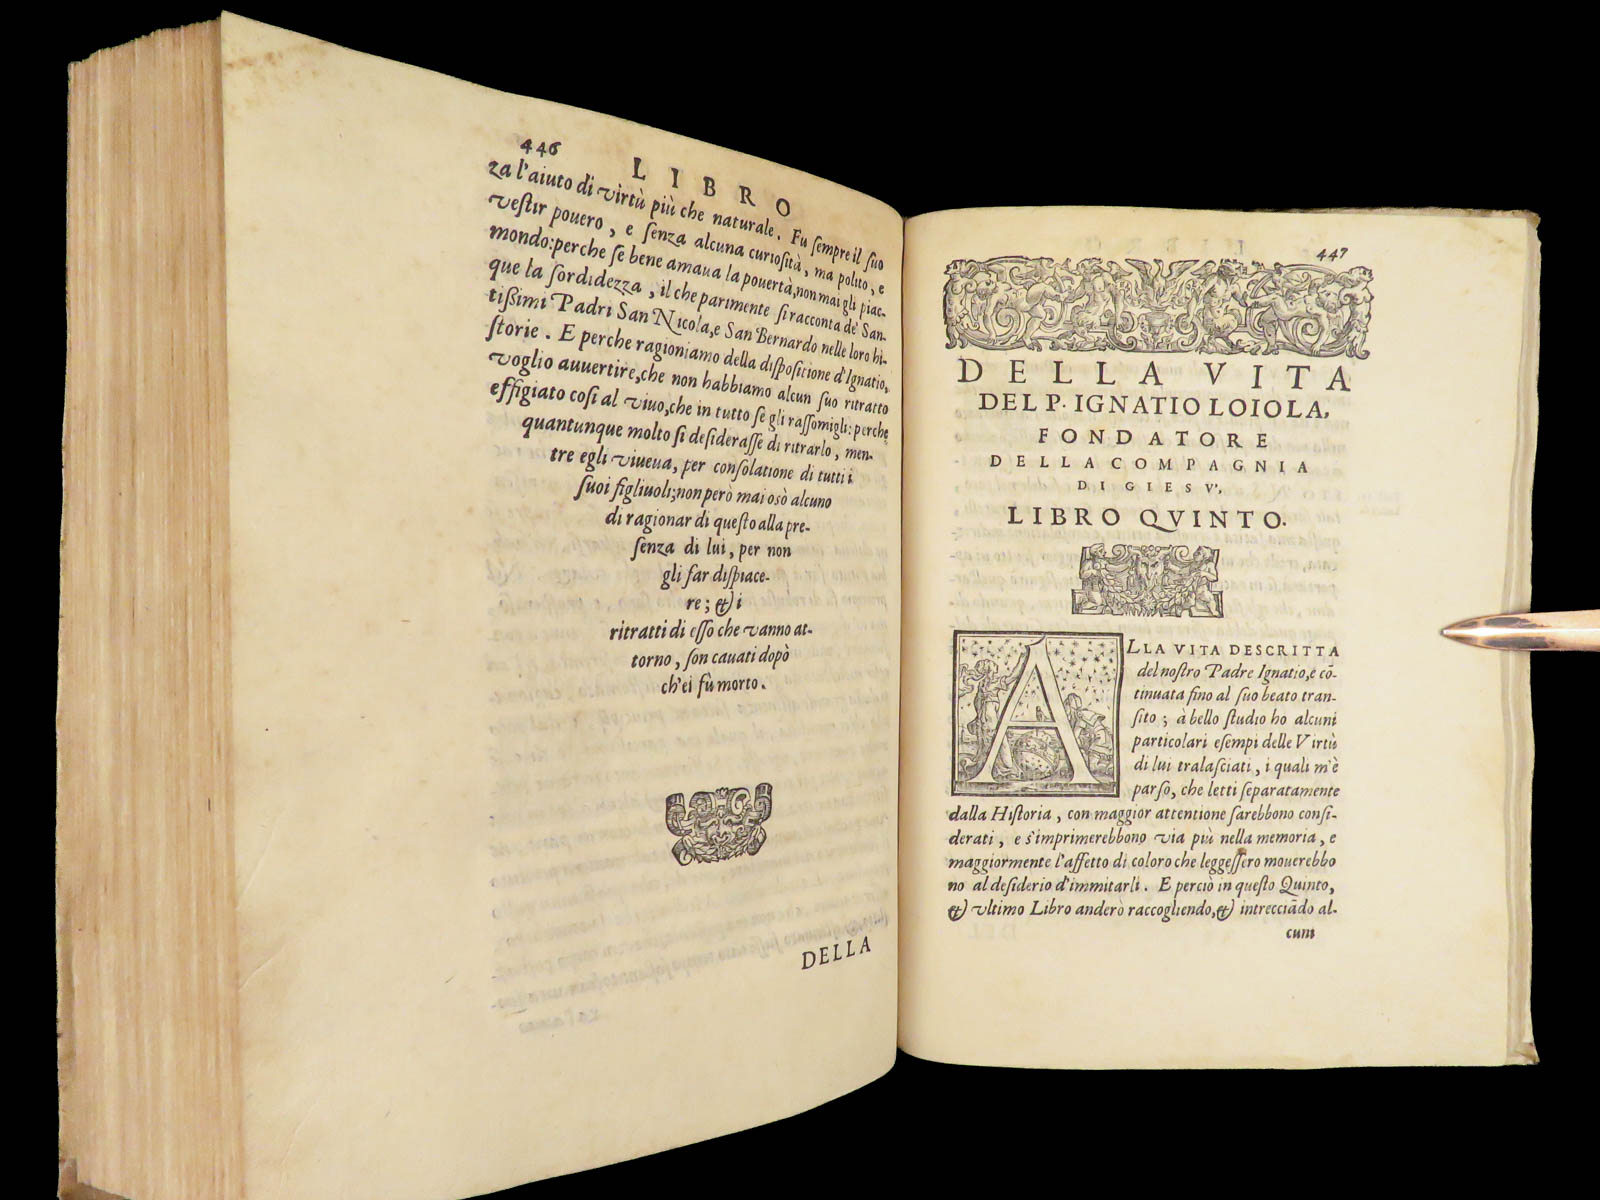 446
LIBRO
za l'aiuto di virtù più che naturale. Fu ſempre il ſuo
veſtir pouero, e ſenza alcuna curioſità, ma polito, e
mondo: perche ſe bene amaua la pouertà, non mai gli piac-
que la ſordidezza, il che parimente ſi racconta de' San-
tiſſimi Padri San Nicola, e San Bernardo nelle loro hi-
ſtorie. E perche ragioniamo della diſpoſitione d'Ignatio,
voglio auuertire, che non habbiamo alcun ſuo ritratto
effigiato coſi al viuo, che in tutto ſe gli raſſomigli: perche
quantunque molto ſi deſideraſſe di ritrarlo, men-
tre egli viueua, per conſolatione di tutti i
ſuoi figliuoli; non però mai osò alcuno
di ragionar di queſto alla pre-
ſenza di lui, per non
gli far diſpiace-
re; & i
ritratti di eſſo che vanno at-
torno, ſon cauati dopò
ch'ei fù morto.
DELLA
447
DELLA VITA
DEL P. IGNATIO LOIOLA,
FONDATORE
DELLA COMPAGNIA
DI GIESV',
LIBRO QVINTO.
ALLA VITA DESCRITTA
del noſtro Padre Ignatio, e cō-
tinuata fino al ſuo beato tran-
ſito; à bello ſtudio ho alcuni
particolari eſempi delle Virtù
di lui tralaſciati, i quali m'è
parſo, che letti ſeparatamente
dalla Hiſtoria, con maggior attentione ſarebbono conſi-
derati, e s'imprimerebbono via più nella memoria, e
maggiormente l'affetto di coloro che leggeſſero mouerebbo
no al deſiderio d'immitarli. E perciò in queſto Quinto,
& vltimo Libro anderò raccogliendo, & intrecciādo al-
cuni